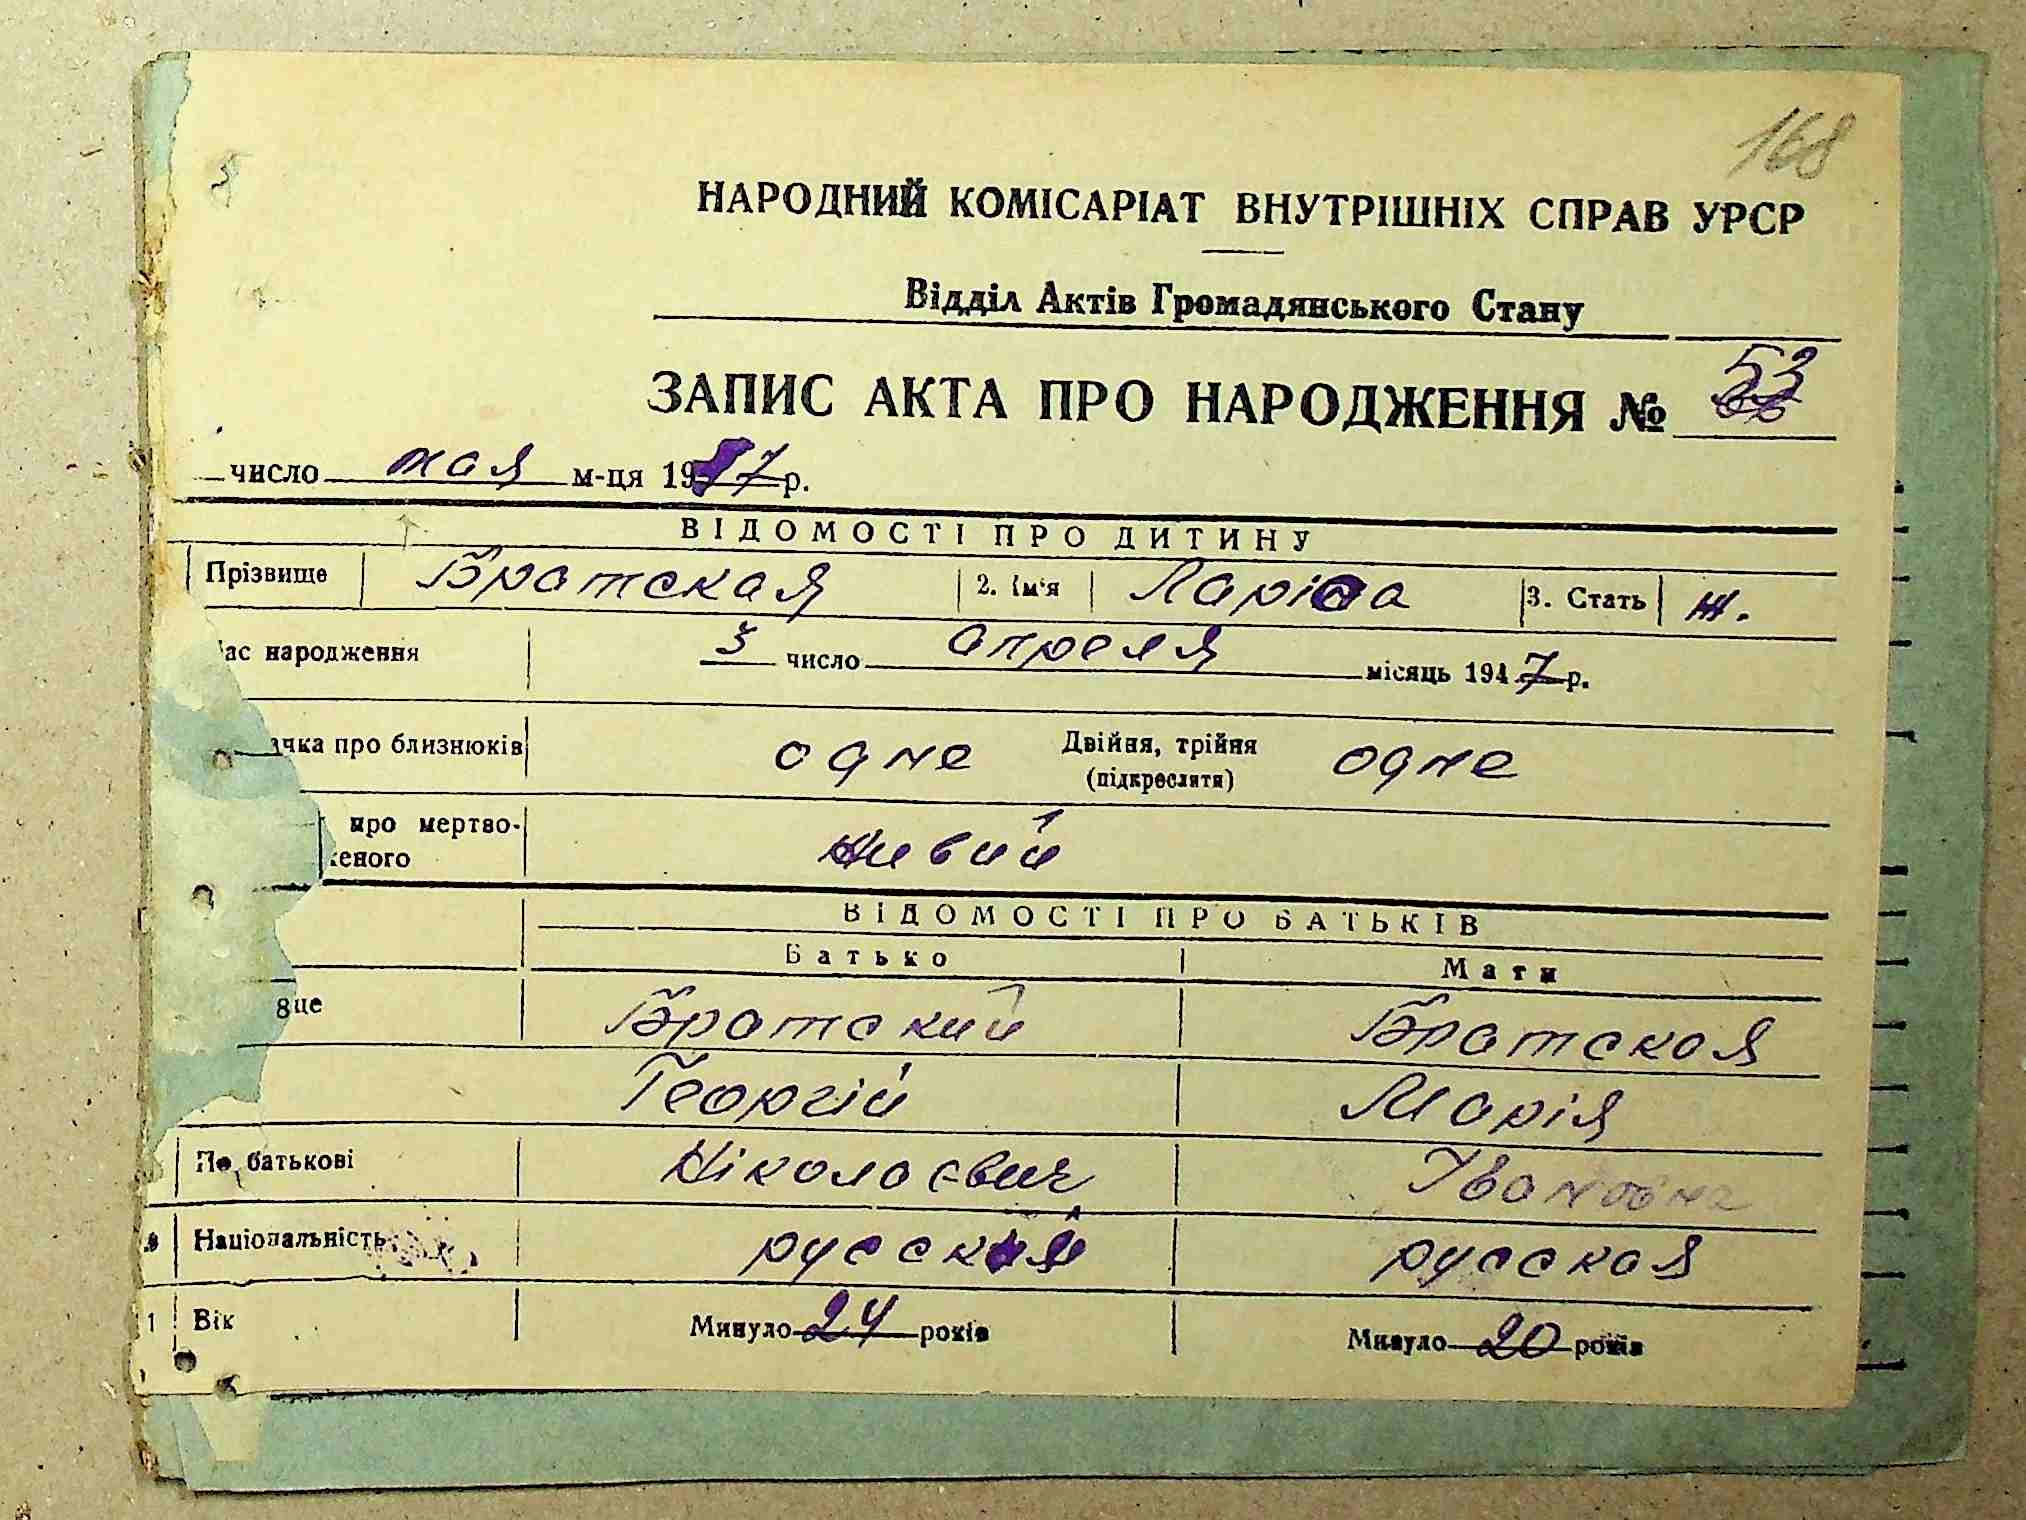 168
НАРОДНИЙ КОМІСАРІАТ ВНУТРІШНІХ СПРАВ УРСР
Відділ Актів Громадянського Стану
ЗАПИС АКТА ПРО НАРОДЖЕННЯ № 53
число мая м-ця 1947 р.
ВІДОМОСТІ ПРО ДИТИНУ
Прізвище Братская 2. Ім'я Ларіса 3. Стать ж.
ас народження 3 число апреля місяць 1947 р.
ачка про близнюків одне Двійня, трійня одне
(підкреслити)
про мертво-
женого живий
ВІДОМОСТІ ПРО БАТЬКІВ
Батько Мати
8 це Братский Братская
Георгій Марія
По батькові Ніколаєвич Івановна
Національність русский русская
1 Вік Минуло 24 років Минуло 20 років